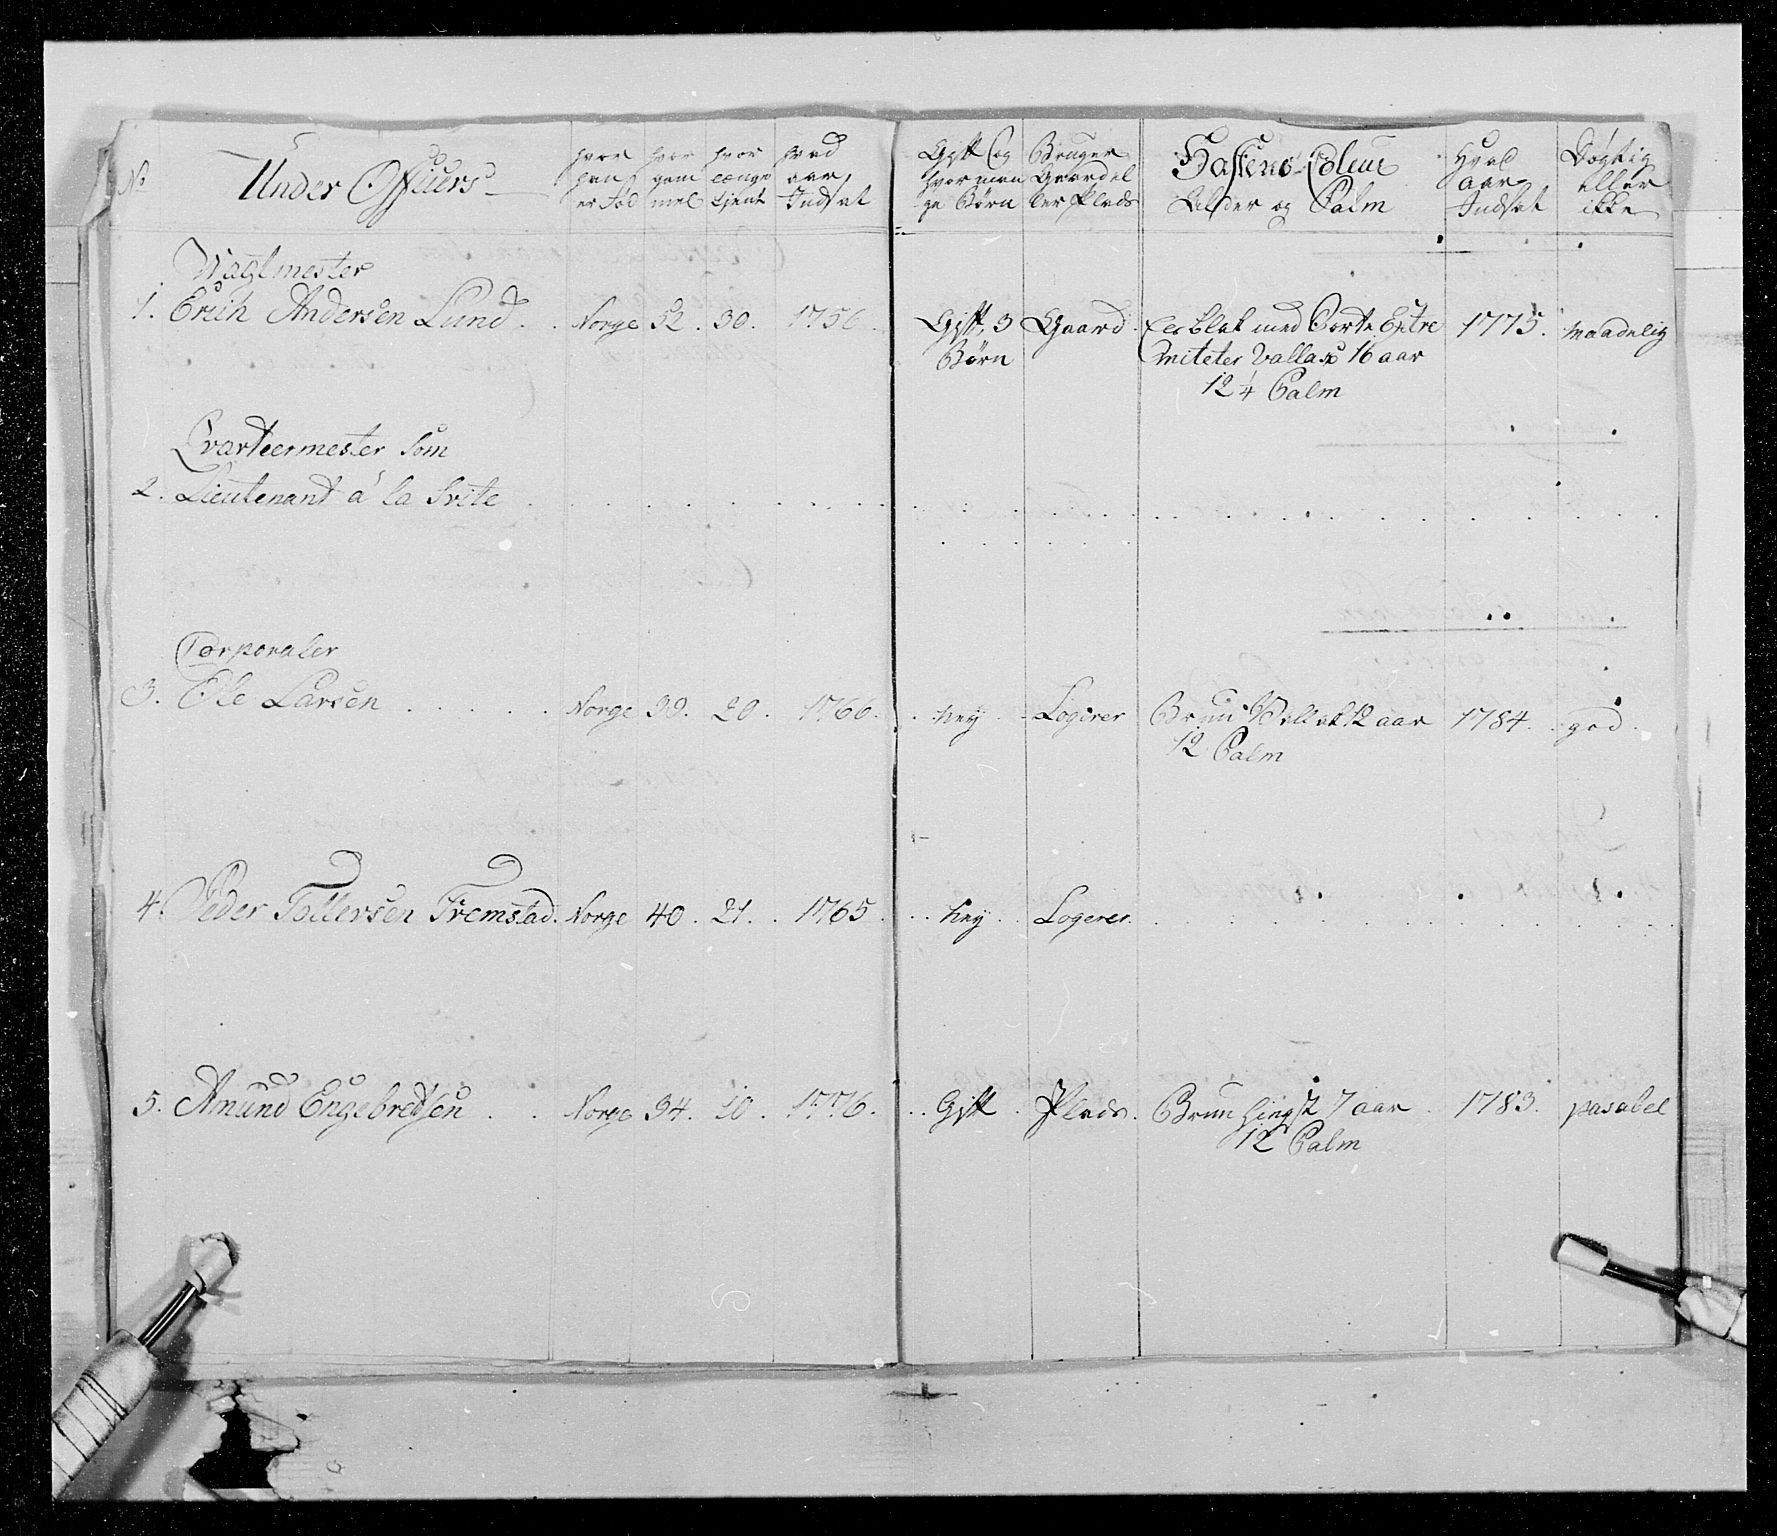 No
Under Officiers
hvor
han
er Fød
hvor
gam
mel
hvor
længe
tjent
hvad
aar
Indsat
Gift og
hvor man
ge Børn
Bruger
Gaard el
ler Plads
Hæstens Coleur
Alder og Palm
Hvad
aar
Indsat
Døgtig
eller
ikke
Wagtmester
1. Erich Andersen Lund . . Norge 52 . 30 . 1756 . Gift, 3 Gaard . med Sorte Extre 1775 . maadelig
Børn miteter Vallak 16 aar
12 1/4 Palm
Qvarteermester som
2. Lieutenant a' la Svite
Corporaler
3. Ole Larsen . . . . . Norge 39 . 20 . 1766 . . Ney . Logerer Bruun Vallak 12 aar 1784 . god .
12 Palm
4. Peder Tollersen Fremstad . Norge 40 . 21 . . 1765 . . . Ney . Logerer
5. Amund Engebredsen . . Norge 34 . 10 . 1776 . . . Gift . Plads . Bruun Hingst 7 aar . 1783 . pasabel
12 Palm